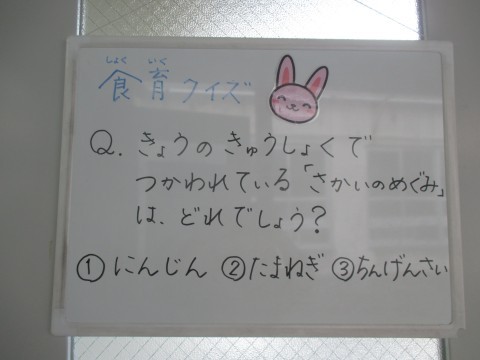 しょくいく
食育クイズ
Q. きょうのきゅうしょくで
つかわれている「さかいのめぐみ」
は、どれでしょう?
①にんじん ②たまねぎ ③ちんげんさい